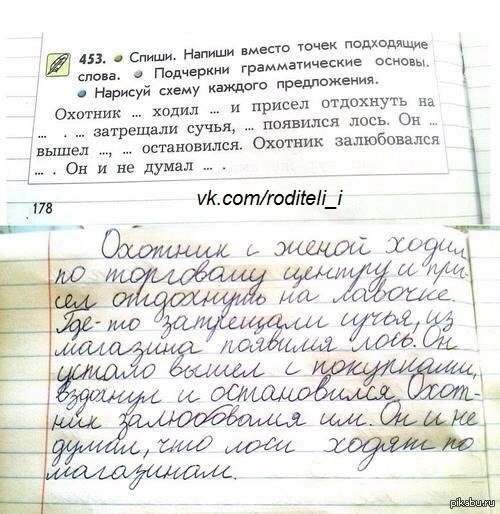 453. Спиши. Напиши вместо точек подходящие
слова. Подчеркни грамматические основы.
Нарисуй схему каждого предложения.
Охотник ... ходил ... и присел отдохнуть на
... . ... затрещали сучья, ... появился лось. Он ...
вышел ..., ... остановился. Охотник залюбовался
... . Он и не думал ... .
vk.com/roditeli_i
178
Охотник с женой ходил
по торговому центру и при-
сел отдохнуть на лавочке.
Где-то затрещали сучья, из
магазина появился лось. Он
устало вышел с покупками,
вздохнул и остановился. Охот-
ник залюбовался им. Он и не
думал, что лоси ходят по
магазинам.
pikabu.ru